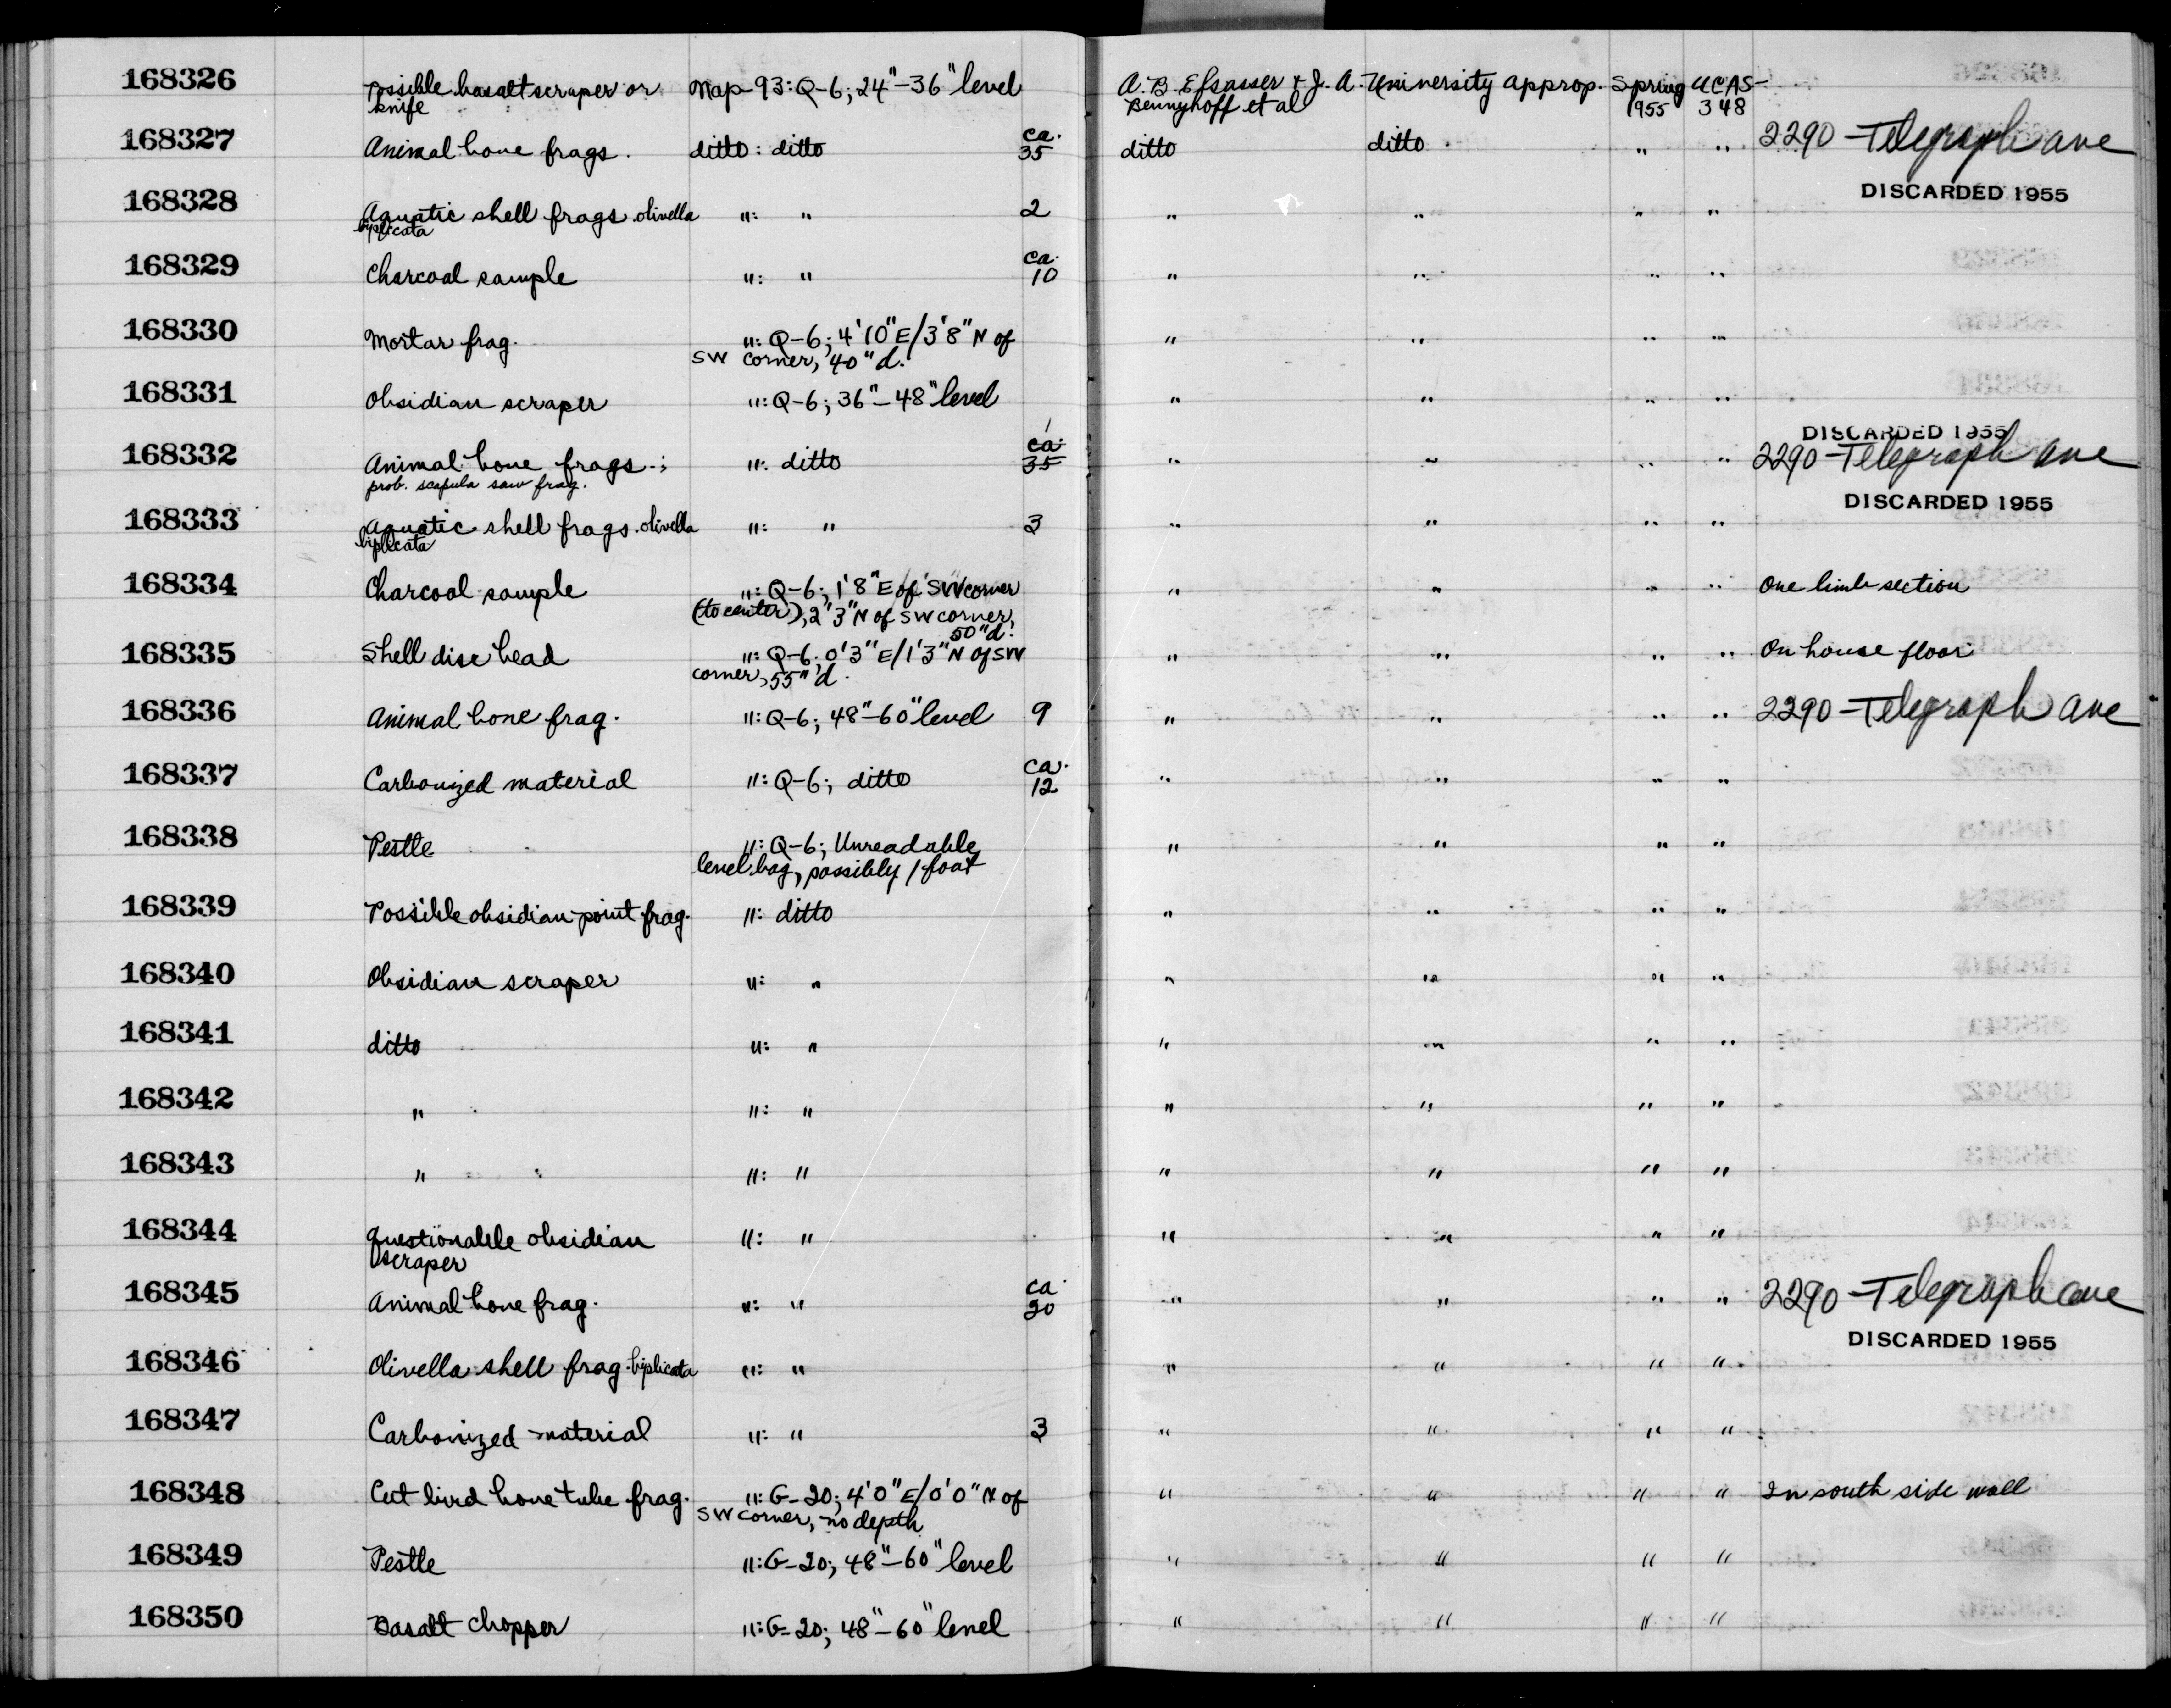 168326 Possible basalt scraper or Nap-93: Q-6; 24"-36" level A. B. Elsasser & J. A. University approp. Spring UCAS-
knife Bennyhoff et al 1955 348
168327 Animal bone frags. ditto: ditto ca. 35 ditto ditto " " 2290-Telegraph ave
DISCARDED 1955
168328 Aquatic shell frags. olivella ": " 2 " " " "
biplicata
168329 Charcoal sample ": " ca. 10 " " " "
168330 Mortar frag. ": Q-6; 4'10"E/3'8" N of " " " "
SW corner, 40"d.
168331 Obsidian scraper ": Q-6; 36"-48" level " " " "
DISCARDED 1955
168332 Animal bone frags.; ": ditto ca. 35 " " " " 2290-Telegraph ave
prob. scapula saw frag.
DISCARDED 1955
168333 Aquatic shell frags. olivella ": " 3 " " " "
biplicata
168334 Charcoal sample ": Q-6; 1'8" E of SW corner " " " " One limb section
(to center), 2"3" N of SW corner,
50"d.
168335 Shell disc bead ": Q-6; 0'3"E/1'3" N of SW " " " " On house floor
corner, 55"d.
168336 Animal bone frag. ": Q-6; 48"-60" level 9 " " " " 2290-Telegraph ave
168337 Carbonized material ": Q-6; ditto ca. 12 " " " "
168338 Pestle ": Q-6; Unreadable " " " "
level bag, possibly 1 foot
168339 Possible obsidian point frag. ": ditto " " " "
168340 Obsidian scraper ": " " " " "
168341 ditto ": " " " " "
168342 " ": " " " " "
168343 " ": " " " " "
168344 Questionable obsidian ": " " " " "
scraper
168345 Animal bone frag. ": " ca. 20 " " " " 2290-Telegraph ave
DISCARDED 1955
168346 Olivella shell frag. biplicata ": " " " " "
168347 Carbonized material ": " 3 " " " "
168348 Cut bird bone tube frag. ": G-20; 4'0"E/0'0" N of " " " " In south side wall
SW corner, no depth
168349 Pestle ": G-20; 48"-60" level " " " "
168350 Basalt chopper ": G-20; 48"-60" level " " " "